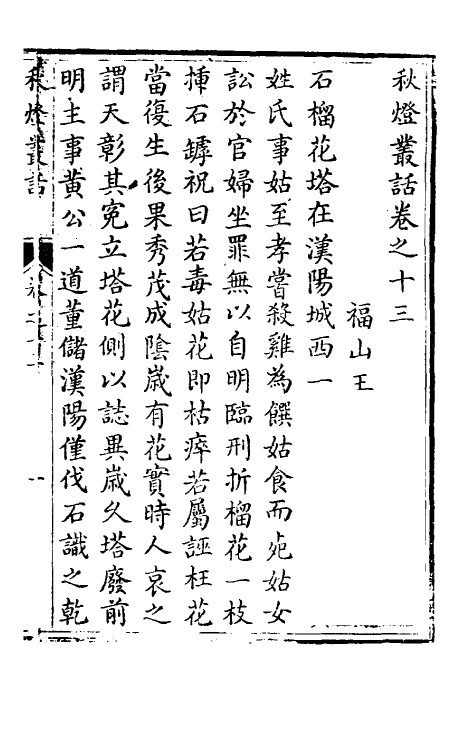 秋燈叢話卷之十三
福山王
石榴花塔在漢陽城西一
姓氏事姑至孝嘗殺雞為饌姑食而死姑女
訟於官婦坐罪無以自明臨刑折榴花一枝
挿石罅祝曰若毒姑花即枯瘁若屬誣枉花
當復生後果秀茂成陰嵗有花實時人哀之
謂天彰其冤立塔花側以誌異嵗久塔廢前
明主事黄公一道董儲漢陽僅伐石識之乾
秋燈叢話
卷之十三
一